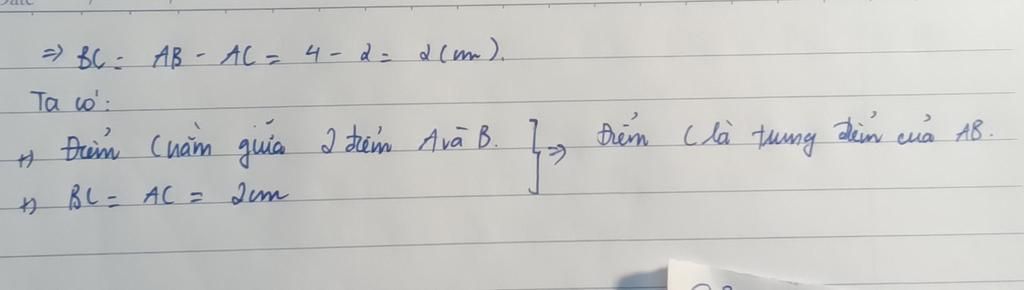 => BC = AB - AC = 4 - 2 = 2 (cm).
Ta có:
+) Điểm C nằm giữa 2 điểm A và B.
+) BC = AC = 2cm
=> Điểm C là trung điểm của AB.